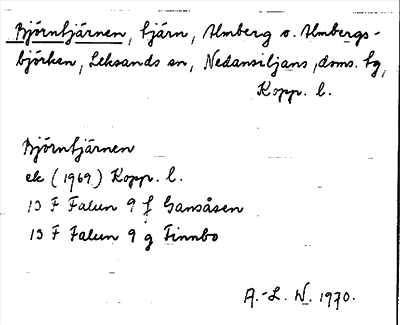 Björntjärnen, tjärn, Almberg o. Almbergs-
björken, Leksands sn, Nedansiljans, doms. tg,
Kopp. l.
Björntjärnen
ek (1969) Kopp. l.
13 F Falun 9 f Gansåsen
13 F Falun 9 g Finnbo
A.-L. N. 1970.